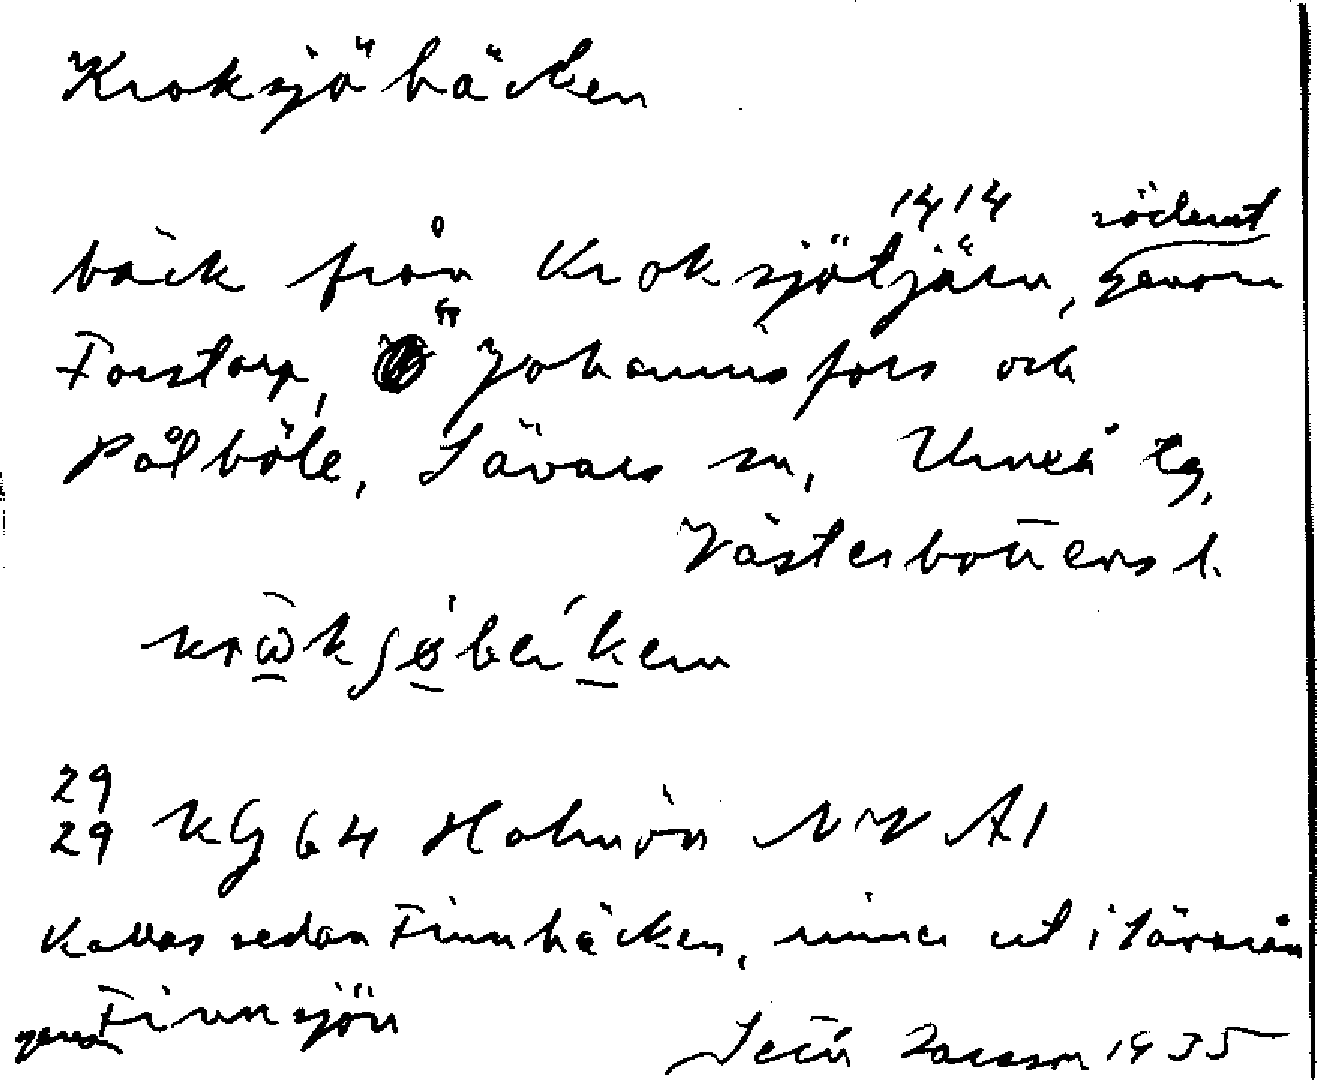 Kroksjöbäcken
1414 söderut
bäck från Kroksjötjärn, genom
Forstorp, Johannisfors och
Pålböle, Sävars sn, Umeå tg,
Västerbottens l.
29
29 KG 64 Holmön NV A1
Kallas sedan Finnbäcken, rinner ut i Sävarån
genom Finnsjön
Larsson 1935